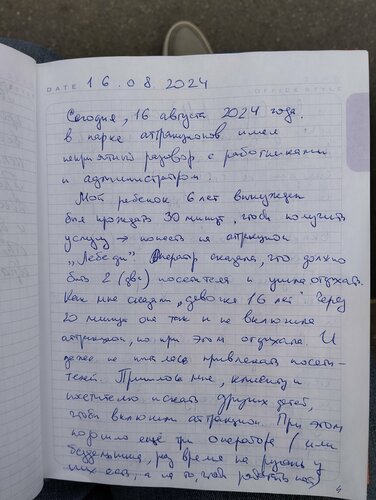 DATE 16.08.2024
OFFICE STYLE
Сегодня, 16 августа 2024 года.
в парке аттракционов имел
неприятный разговор с работниками
и администратором.
Мой ребенок 6 лет вынужден
был прождать 30 минут, чтоб получить
услугу → попасть на аттракцион
„Лебеди" Оператор сказала, что должно
быть 2 (два) посетителя и ушла отдыхать.
Как мне сказали „девочка 16 лет" Через
20 минут она так и не включила
аттракцион, но при этом отдыхала. И
далее не пыталась привлекать посети-
телей. Пришлось мне, клиенту и
посетителю искать других детей,
чтобы включили аттракцион. При этом
подошло ещё три оператора (или
бездельника, раз время на ругань у
них есть, а на то, чтоб работать нет)